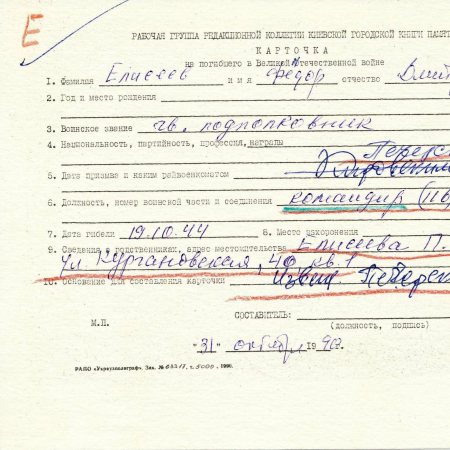 Е
РАБОЧАЯ ГРУППА РЕДАКЦИОННОЙ КОЛЛЕГИИ КИЕВСКОЙ ГОРОДСКОЙ КНИГИ ПАМЯ
КАРТОЧКА
на погибшего в Великой Отечественной войне
1. Фамилия Елисеев имя Фёдор отчество Дмит
2. Год и место рождения
3. Воинское звание гв. подполковник
4. Национальность, партийность, профессия, награды
5. Дата призыва и каким райвоенкоматом
6. Должность, номер воинской части и соединения командир (116
7. Дата гибели 19.10.44 8. Место захоронения
9. Сведения о родственниках, адрес местожительства Елисеева П.
ул. Кургановская, 40 кв. 1
10. Основание для составления карточки Извещ. Печерск
СОСТАВИТЕЛЬ:
М.П. (должность, подпись)
"31" октября 1990.
РАПО «Укрвузполиграф». Зак. № т. 5000, 1990.